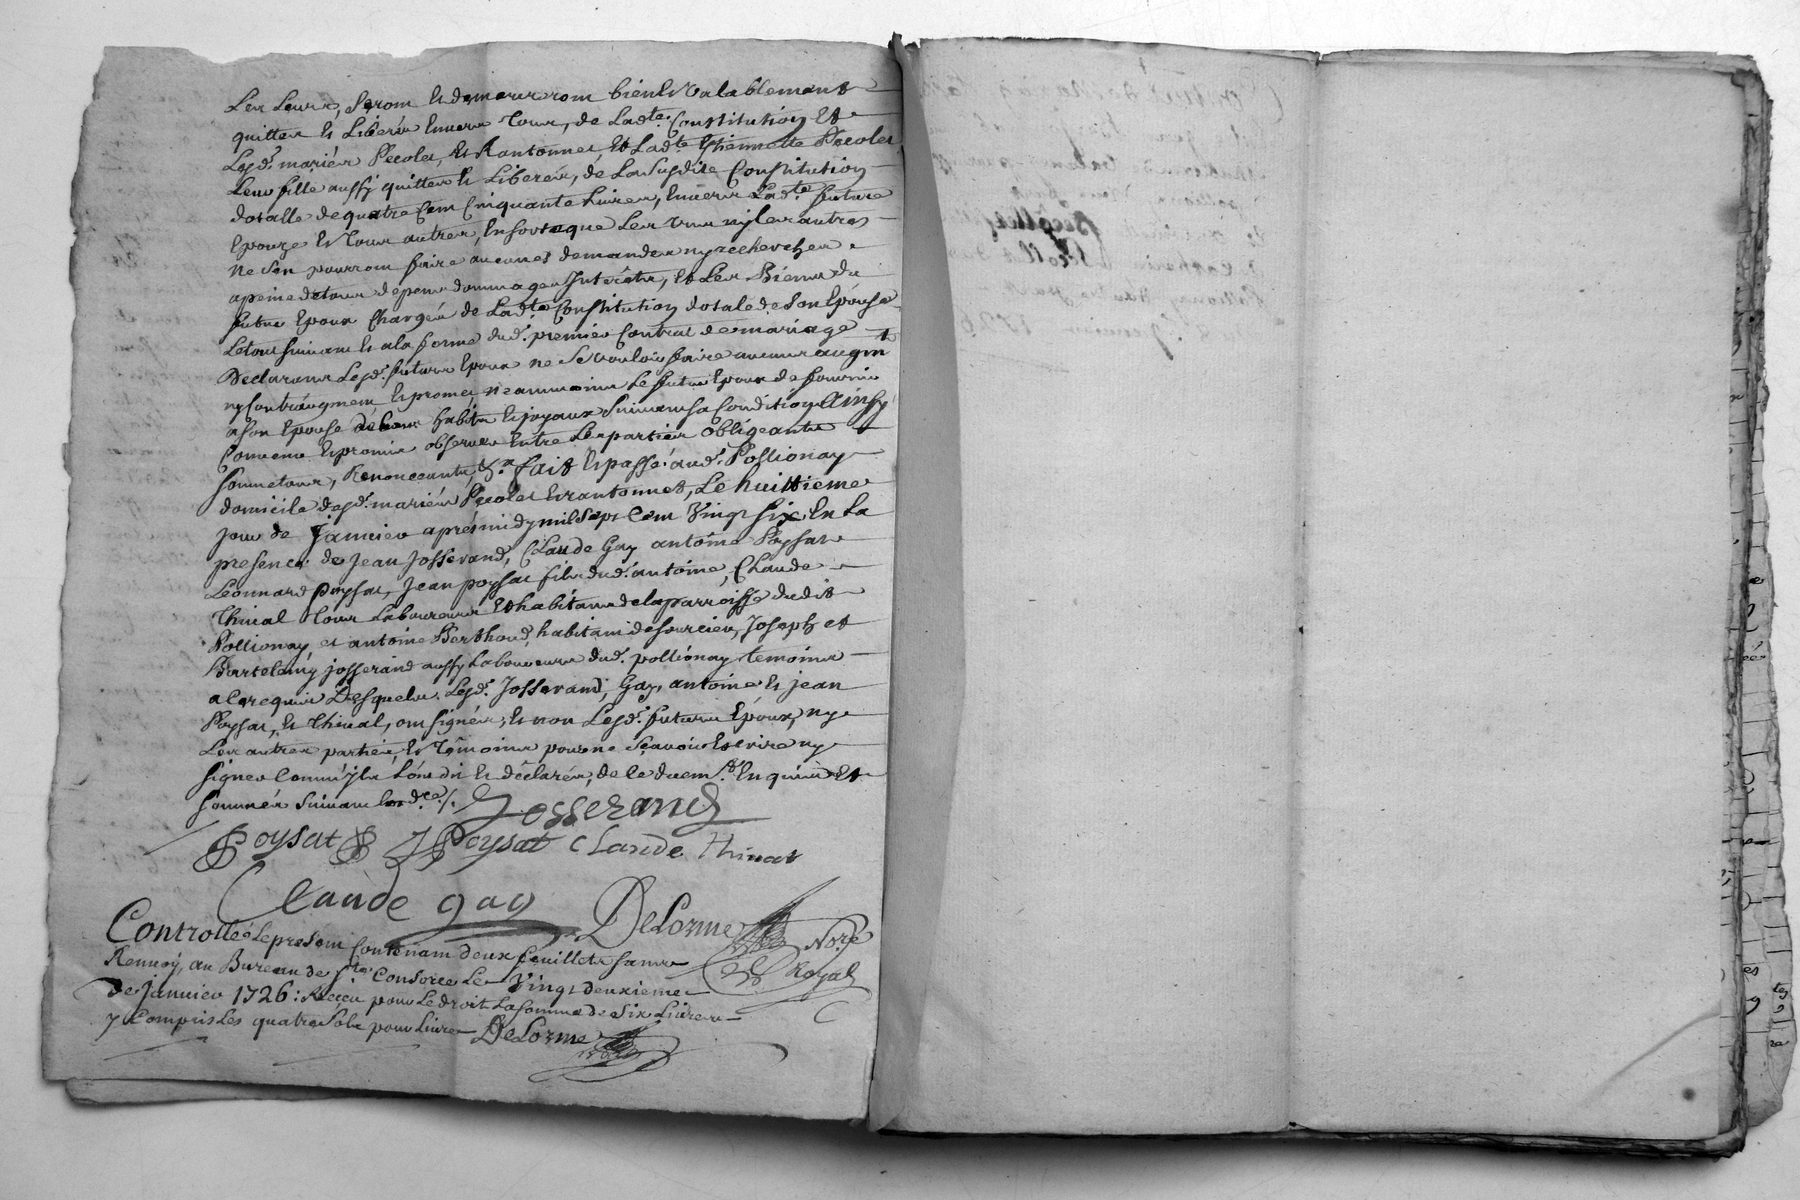 Les Leurs, Seront et demeureront bien et Valablement
quittes et Liberés Envers Tous, de Ladte. Constitution Et
Lesds. mariés Pecolet, et Rantonnet Et Ladte Ethiennette Pecolet
Leur fille aussy quittes et Liberés, de La Susdite Constitution
dotalle de quatre Cent Cinquante Livres, Envers Ladte. future
Epouze et Tous autres, En sorte que Les Uns ny les autres
Ne s'en pourront faire aucunes demandes ny rechercher
a peine de tous depens dommages Interets, Et Les Biens du
futur Epoux Chargés de Ladte Constitution dotale de Son Epouse
Le tout suivant et a la forme dud. premier Contrat de mariage
Declarants Lesds. futurs Epoux ne Se vouloir faire aucuns augmt
ny Contraugment et promet neanmoins Le futur Epoux de fournir
a Son Epouse habits et joyaux Suivant sa Condition Ainsy
Convenu et promis observer Entre Les parties Obligeants
Soumettans, Renonceants, &a. fait et passé aud. Pollionay
domicile desds. mariés Pecolet et rantonnet, Le huittieme
jour de janvier aprés midy mil Sept Cent Vingt Six En La
presence de Jean Josserand, Claude Gay antoine Poysat
Leonnard Poysat, Jean poysat fils dud. antoine, Claude
Thinal Tous Laboureurs Et habitans de la parroisse dudit
Pollionay et antoine Berthoud habitant de sourcieu, Joseph et
Bartelémy josserand aussy Laboureurs dud. pollionay temoins
a Ce requis Desquels Lesds. Josserand, Gay, antoine et jean
Poysat, et Thinal, ont signés, et non Lesds. futurs Epoux, ny
Les autres parties, et Témoins pour ne Sçavoir Escrire ny
signer Comme ils L'ont dit et déclarés, de Ce duemt. Enquis Et
Sommés Suivant
Josserand
Poysat JPoysat Claude Thinal
Claude gay
DeLorme Nore
Royal
Controllé Le present Contenant deux feuillets sans
Renvoy, au Bureau de Ste Consorce Le Vingt deuxieme
de Janvier 1726: Receu pour Le droit La Somme de Six Livres
y Compris Les quatre Sols pour Livre DeLorme